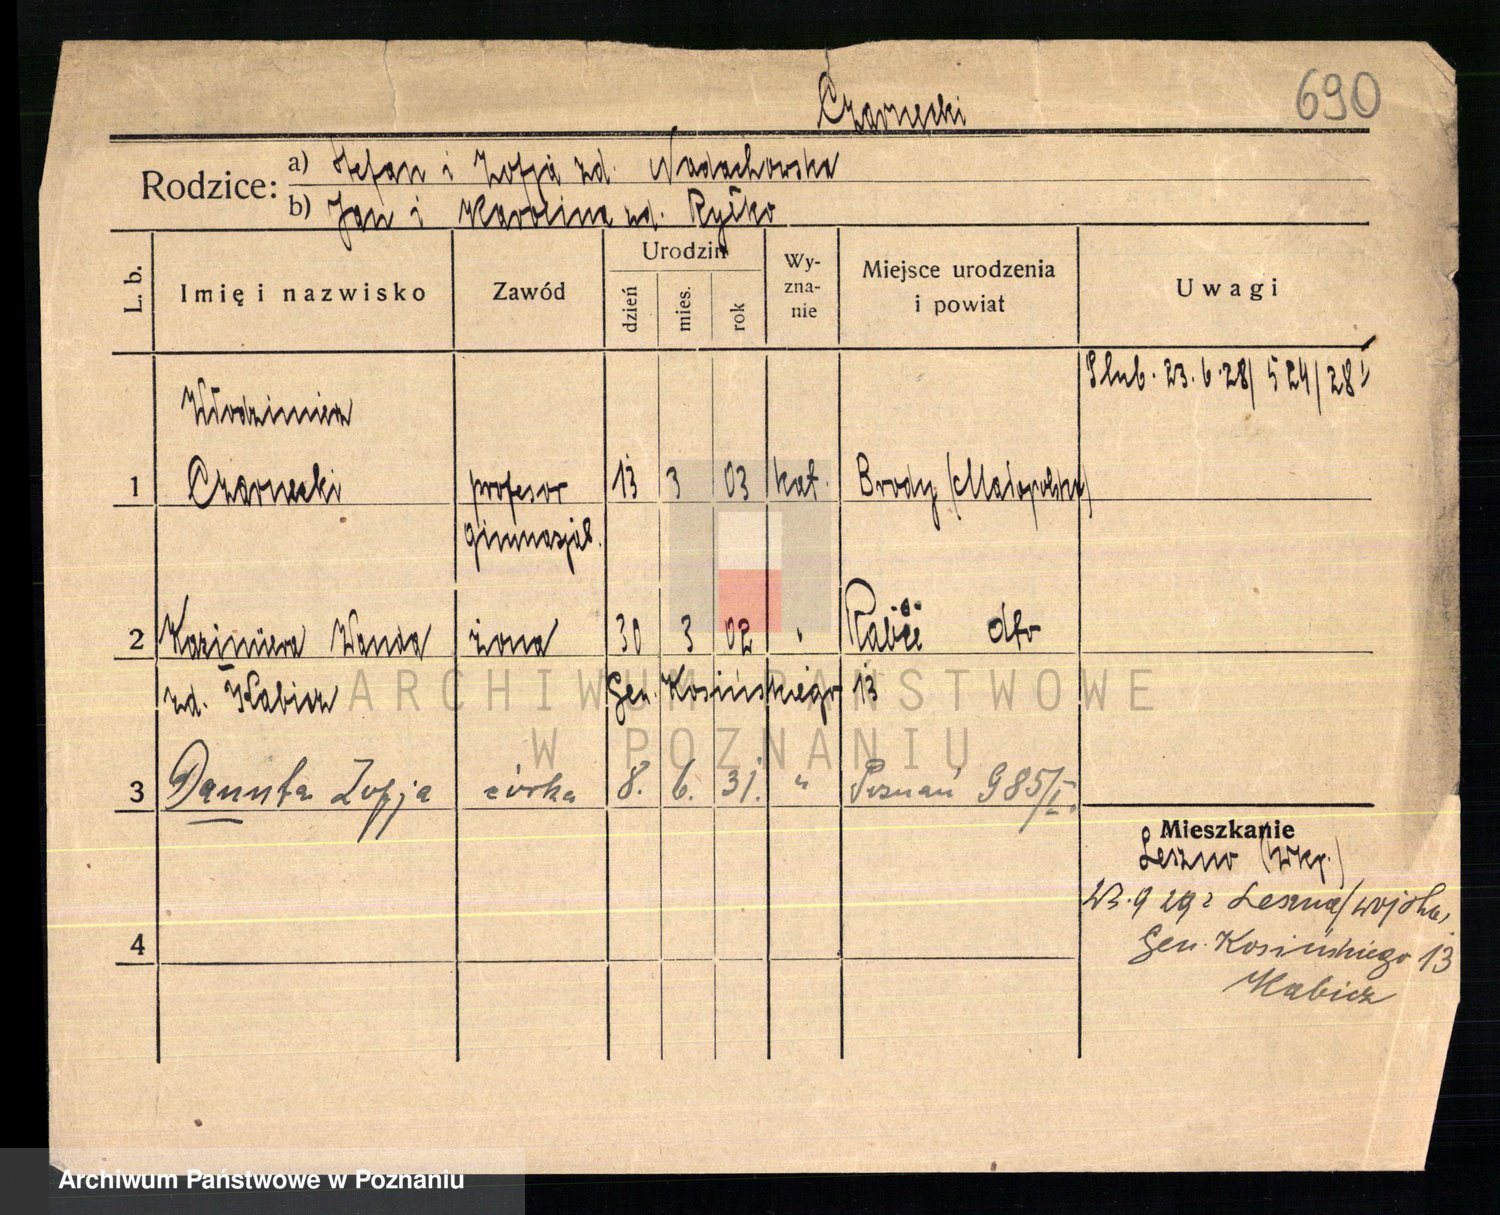 Czarnecki
690
Rodzice: a) Stefan i Zofja zd. Nadachowska
b) Jan i Karolina zd. Ryśko
L. b. Imię i nazwisko Zawód Urodzin dzień mies. rok Wyznanie Miejsce urodzenia i powiat Uwagi
Ślub. 23.6.28/ 524/28
Włodzimierz
1 Czarnecki profesor 13 3 03 kat. Brody (Małopolska)
gimnazjal.
2 Kazimiera Wanda żona 30 3 02 " dto
zd. Kabicz Gen. Kosińskiego 13
3 Danuta Zofja córka 8. 6. 31. " Poznań 985/I.
Mieszkanie
Leszno (Wkp.)
23.9 29 z Leszna/wojska,
4
Gen. Kosińskiego 13
Kabicz
ARCHIWUM PAŃSTWOWE
W POZNANIU
Archiwum Państwowe w Poznaniu